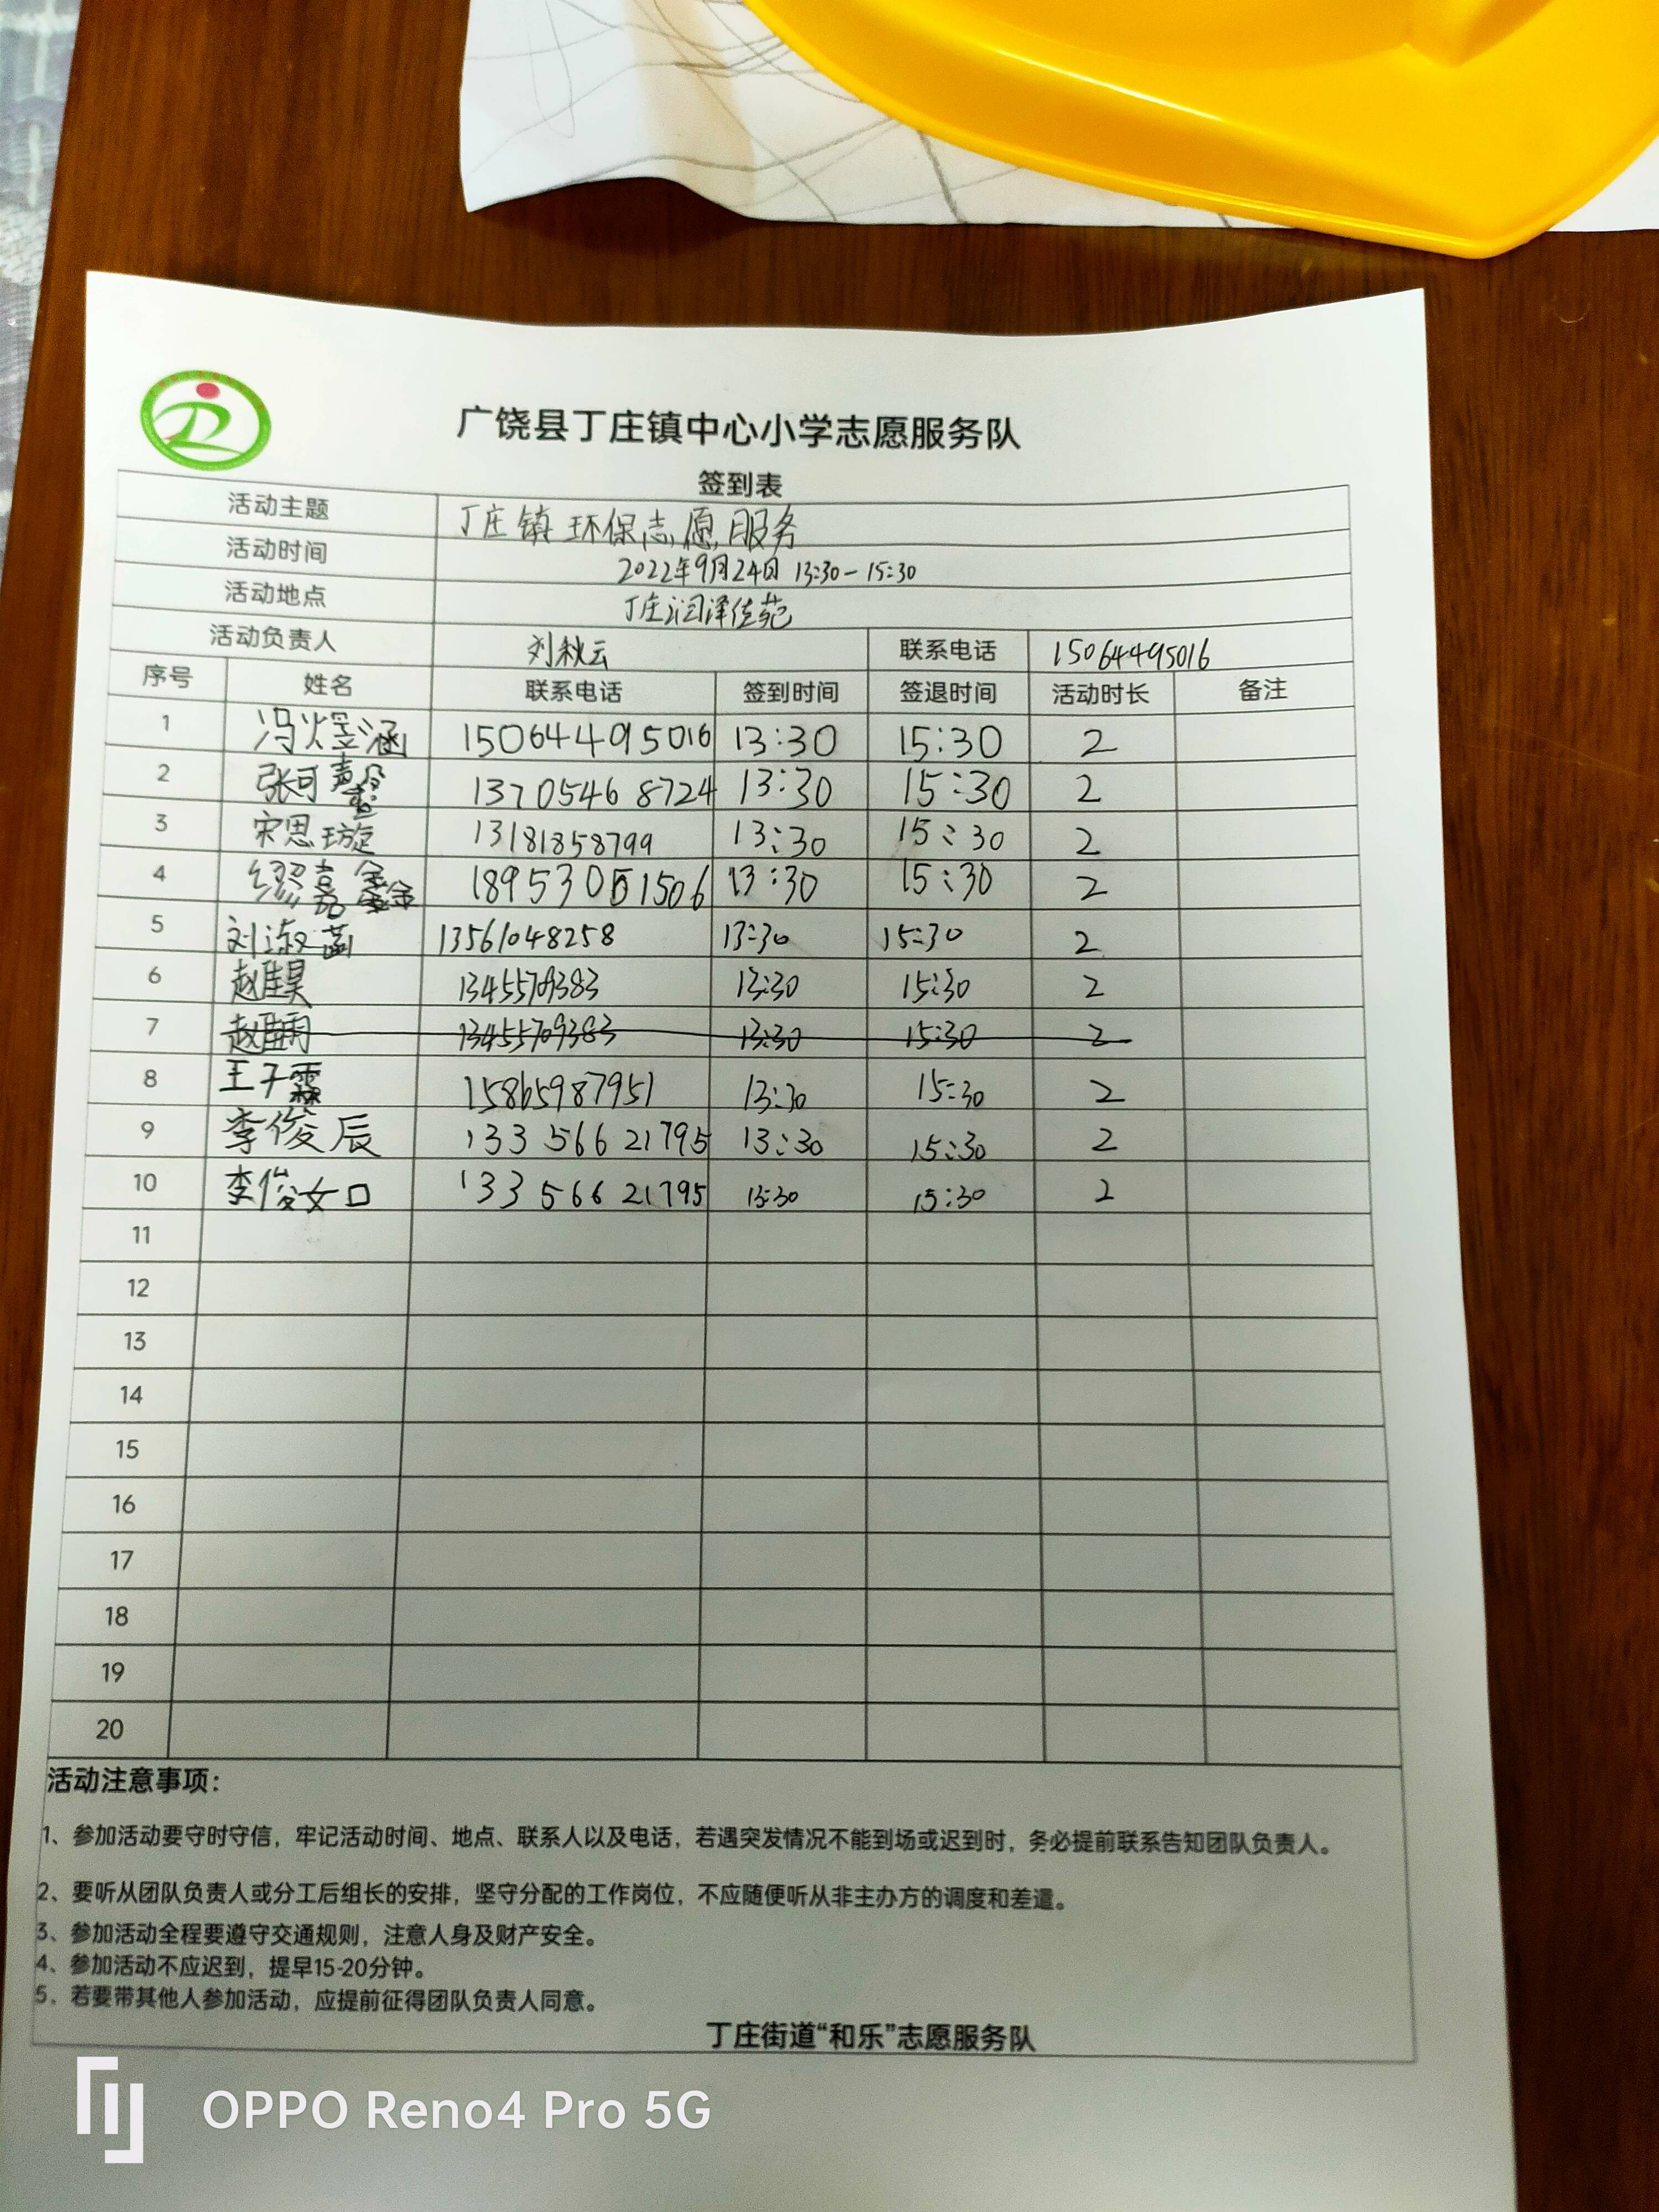 广饶县丁庄镇中心小学志愿服务队
签到表
活动主题 丁庄镇环保志愿服务
活动时间 2022年9月24日 13:30-15:30
活动地点 丁庄润泽佳苑
活动负责人 刘秋云 联系电话 15064495016
序号 姓名 联系电话 签到时间 签退时间 活动时长 备注
1 冯煜涵 15064495016 13:30 15:30 2
2 张可 13705468724 13:30 15:30 2
3 宋思璇 13181858799 13:30 15:30 2
4 缪嘉 13:30 15:30 2
5 刘淑菡 13561048258 13:30 15:30 2
6 赵佳昊 13455709383 13:30 15:30 2
7 赵 13455709383 13:30 15:30 2
8 王子霖 15865987951 13:30 15:30 2
9 李俊辰 133 566 21795 13:30 15:30 2
10 李俊如 133 566 21795 13:30 15:30 2
11
12
13
14
15
16
17
18
19
20
活动注意事项：
1、参加活动要守时守信，牢记活动时间、地点、联系人以及电话，若遇突发情况不能到场或迟到时，务必提前联系告知团队负责人。
2、要听从团队负责人或分工后组长的安排，坚守分配的工作岗位，不应随便听从非主办方的调度和差遣。
3、参加活动全程要遵守交通规则，注意人身及财产安全。
4、参加活动不应迟到，提早15-20分钟。
5、若要带其他人参加活动，应提前征得团队负责人同意。
丁庄街道“和乐”志愿服务队
OPPO Reno4 Pro 5G